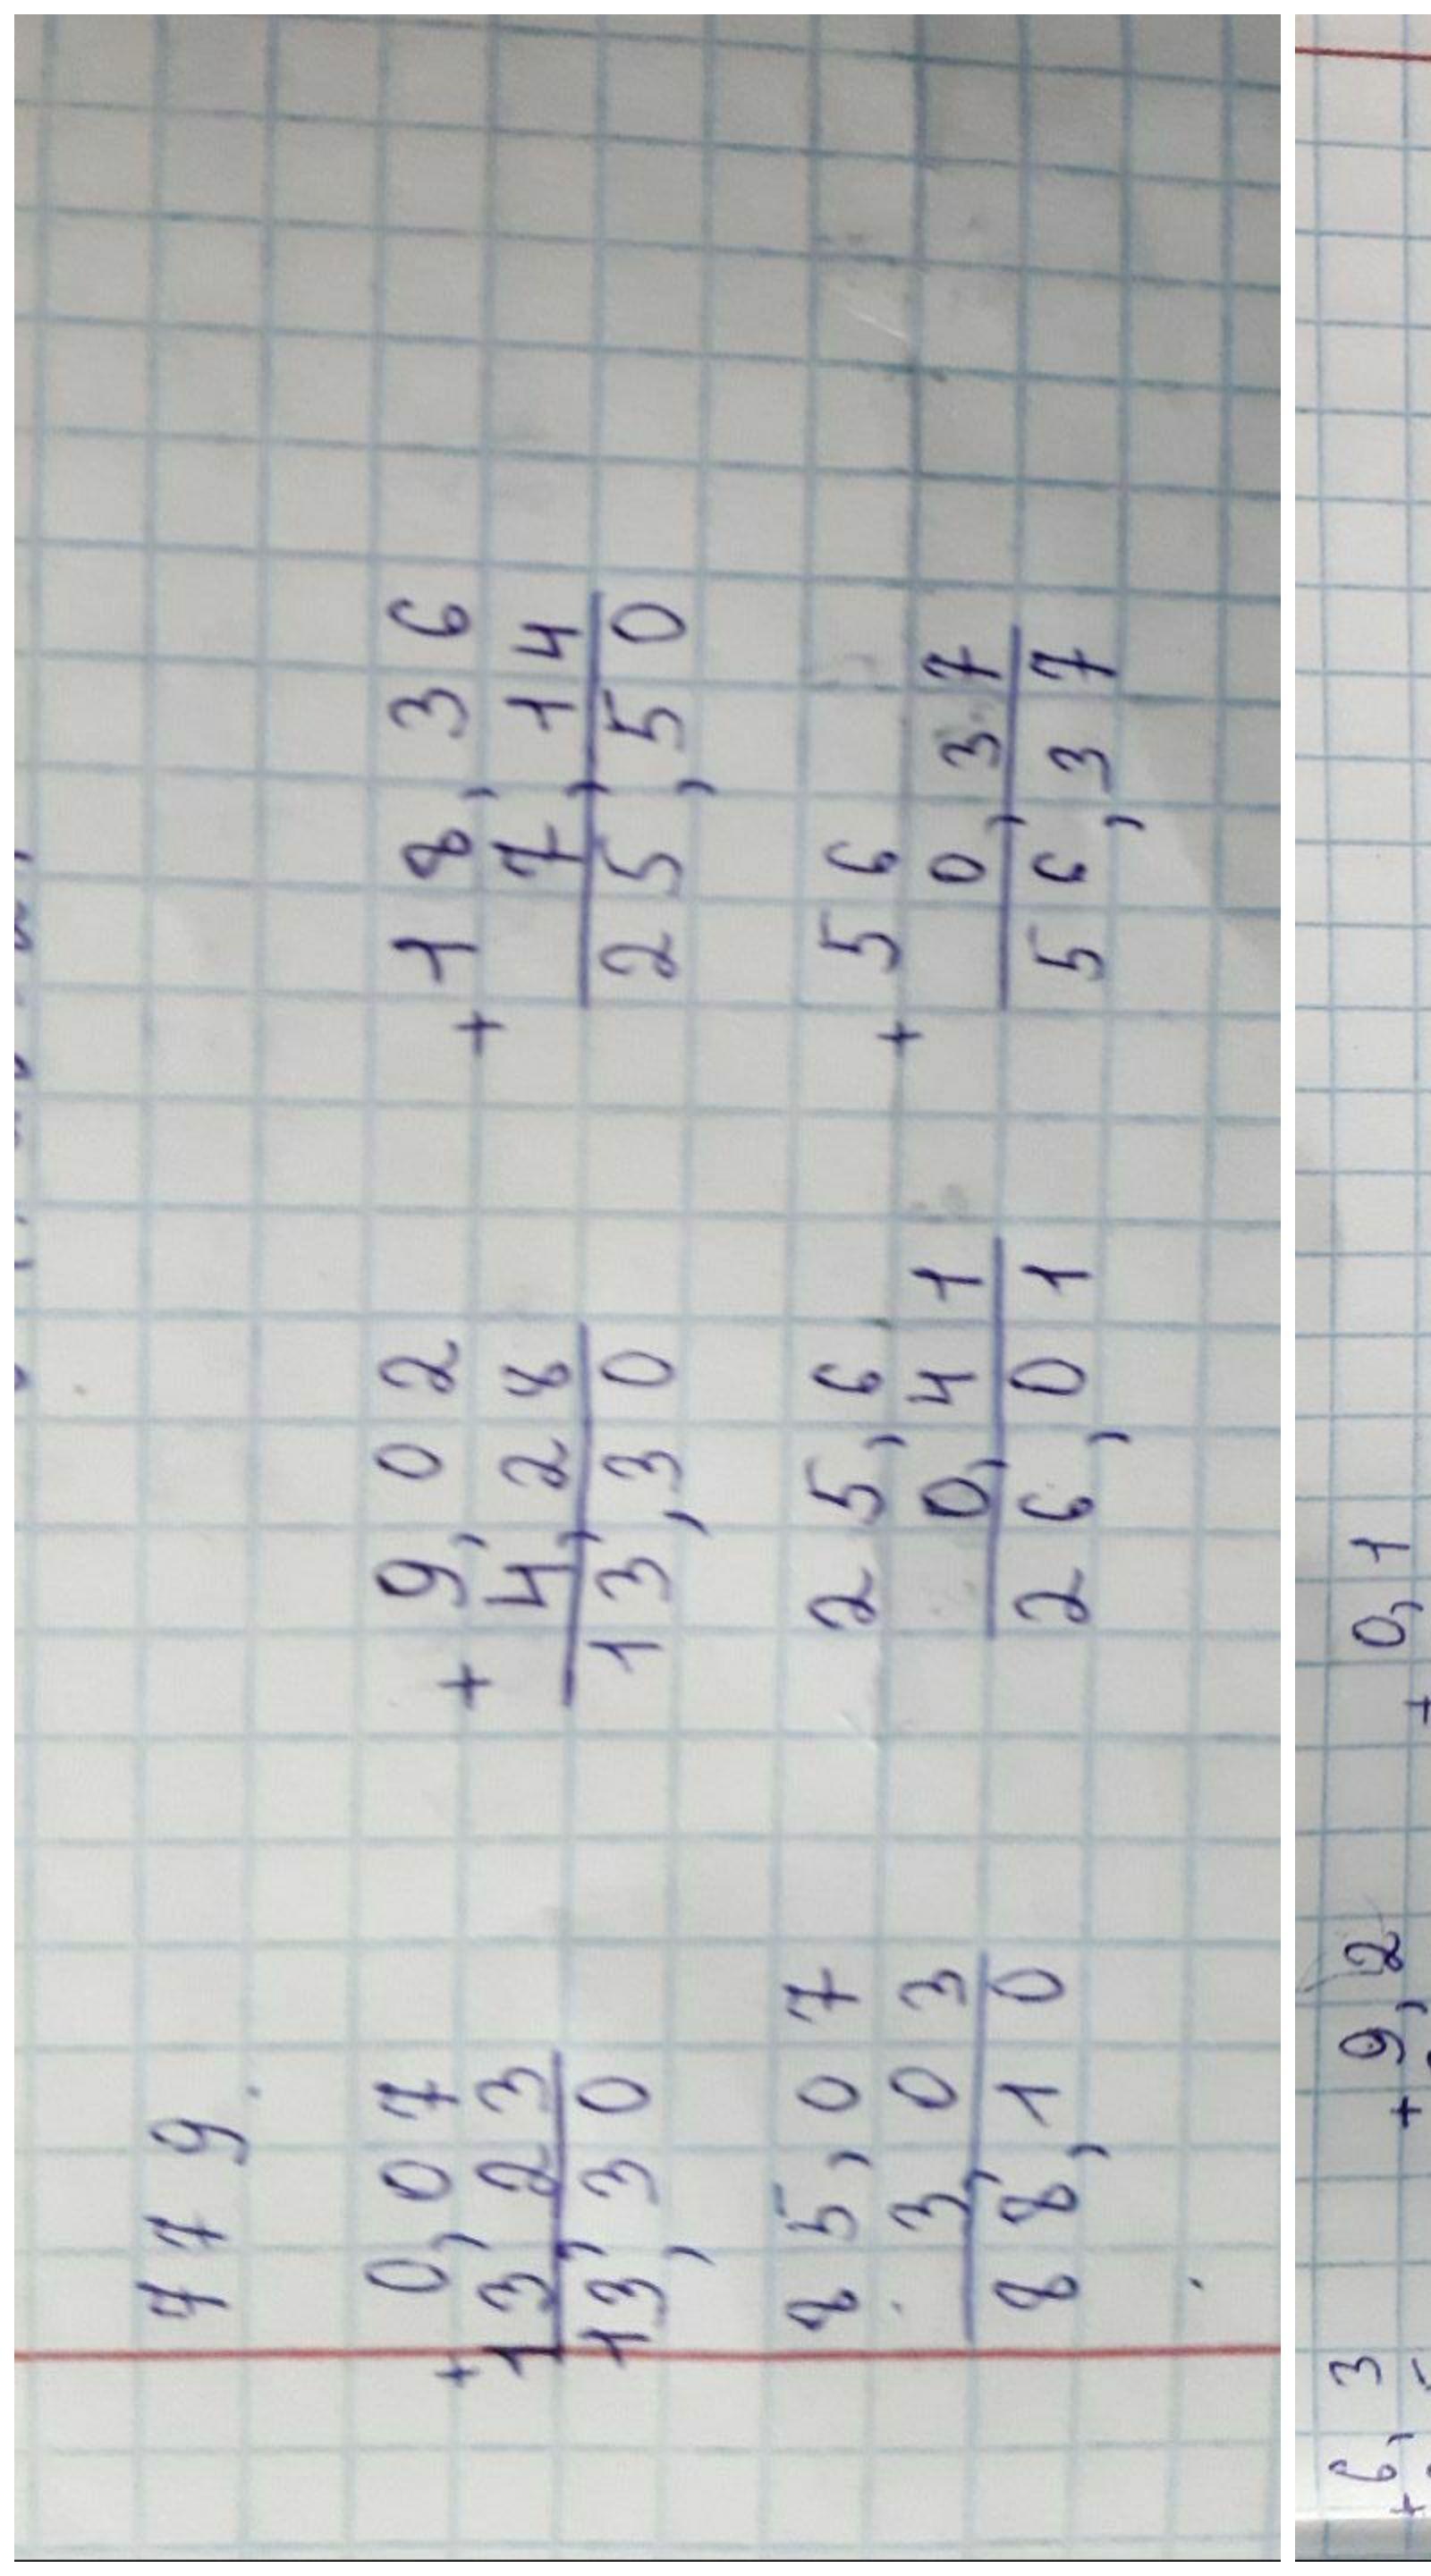 779.
+ 0,07 + 9,02 + 18,36
13,23 4,28 7,14
13,30 13,30 25,50
85,07 25,6 + 56
3,03 0,41 0,37
88,10 26,01 56,37
+ 6,3 + 9,2 + 0,1